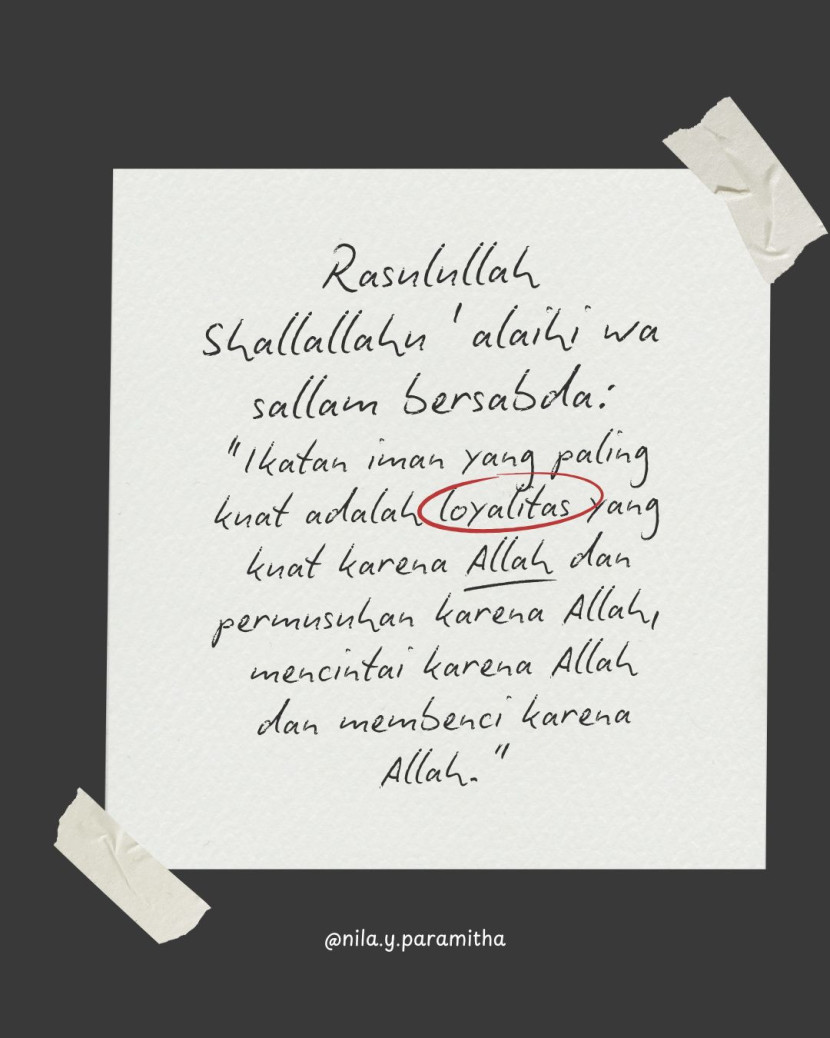 Rasulullah
Shallallahu 'alaihi wa
sallam bersabda:
"Ikatan iman yang paling
kuat adalah loyalitas yang
kuat karena Allah dan
permusuhan karena Allah,
mencintai karena Allah
dan membenci karena
Allah."
@nila.y.paramitha